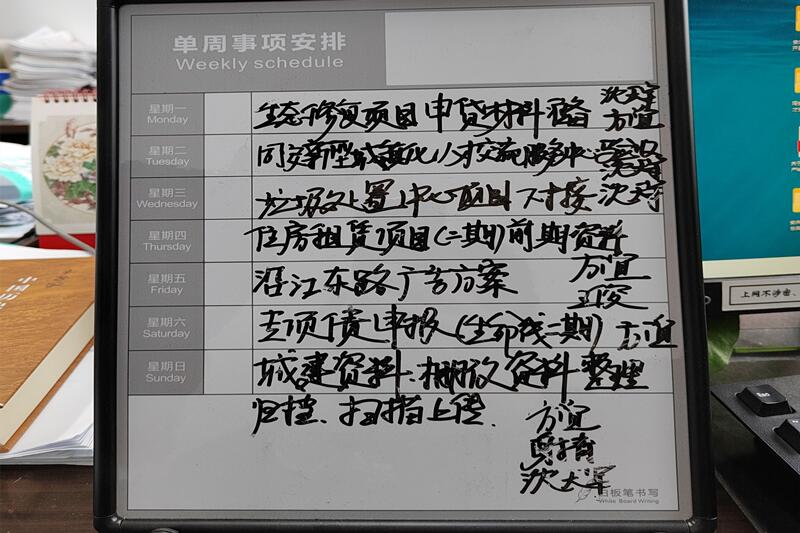 单周事项安排
Weekly schedule
星期一
Monday
生态修复项目申贷材料
方宜
星期二
Tuesday
同安新型城镇化
星期三
Wednesday
垃圾处置中心项目对接
星期四
Thursday
住房租赁项目(二期)前期资料
方宜
星期五
Friday
江东路广告方案
星期六
Saturday
专项债申报(生命线二期) 方宜
星期日
Sunday
城建资料、棚改资料整理
归档、扫描上传.
方宜
白板笔书写
White Board Writing
Esc
上网不涉密、